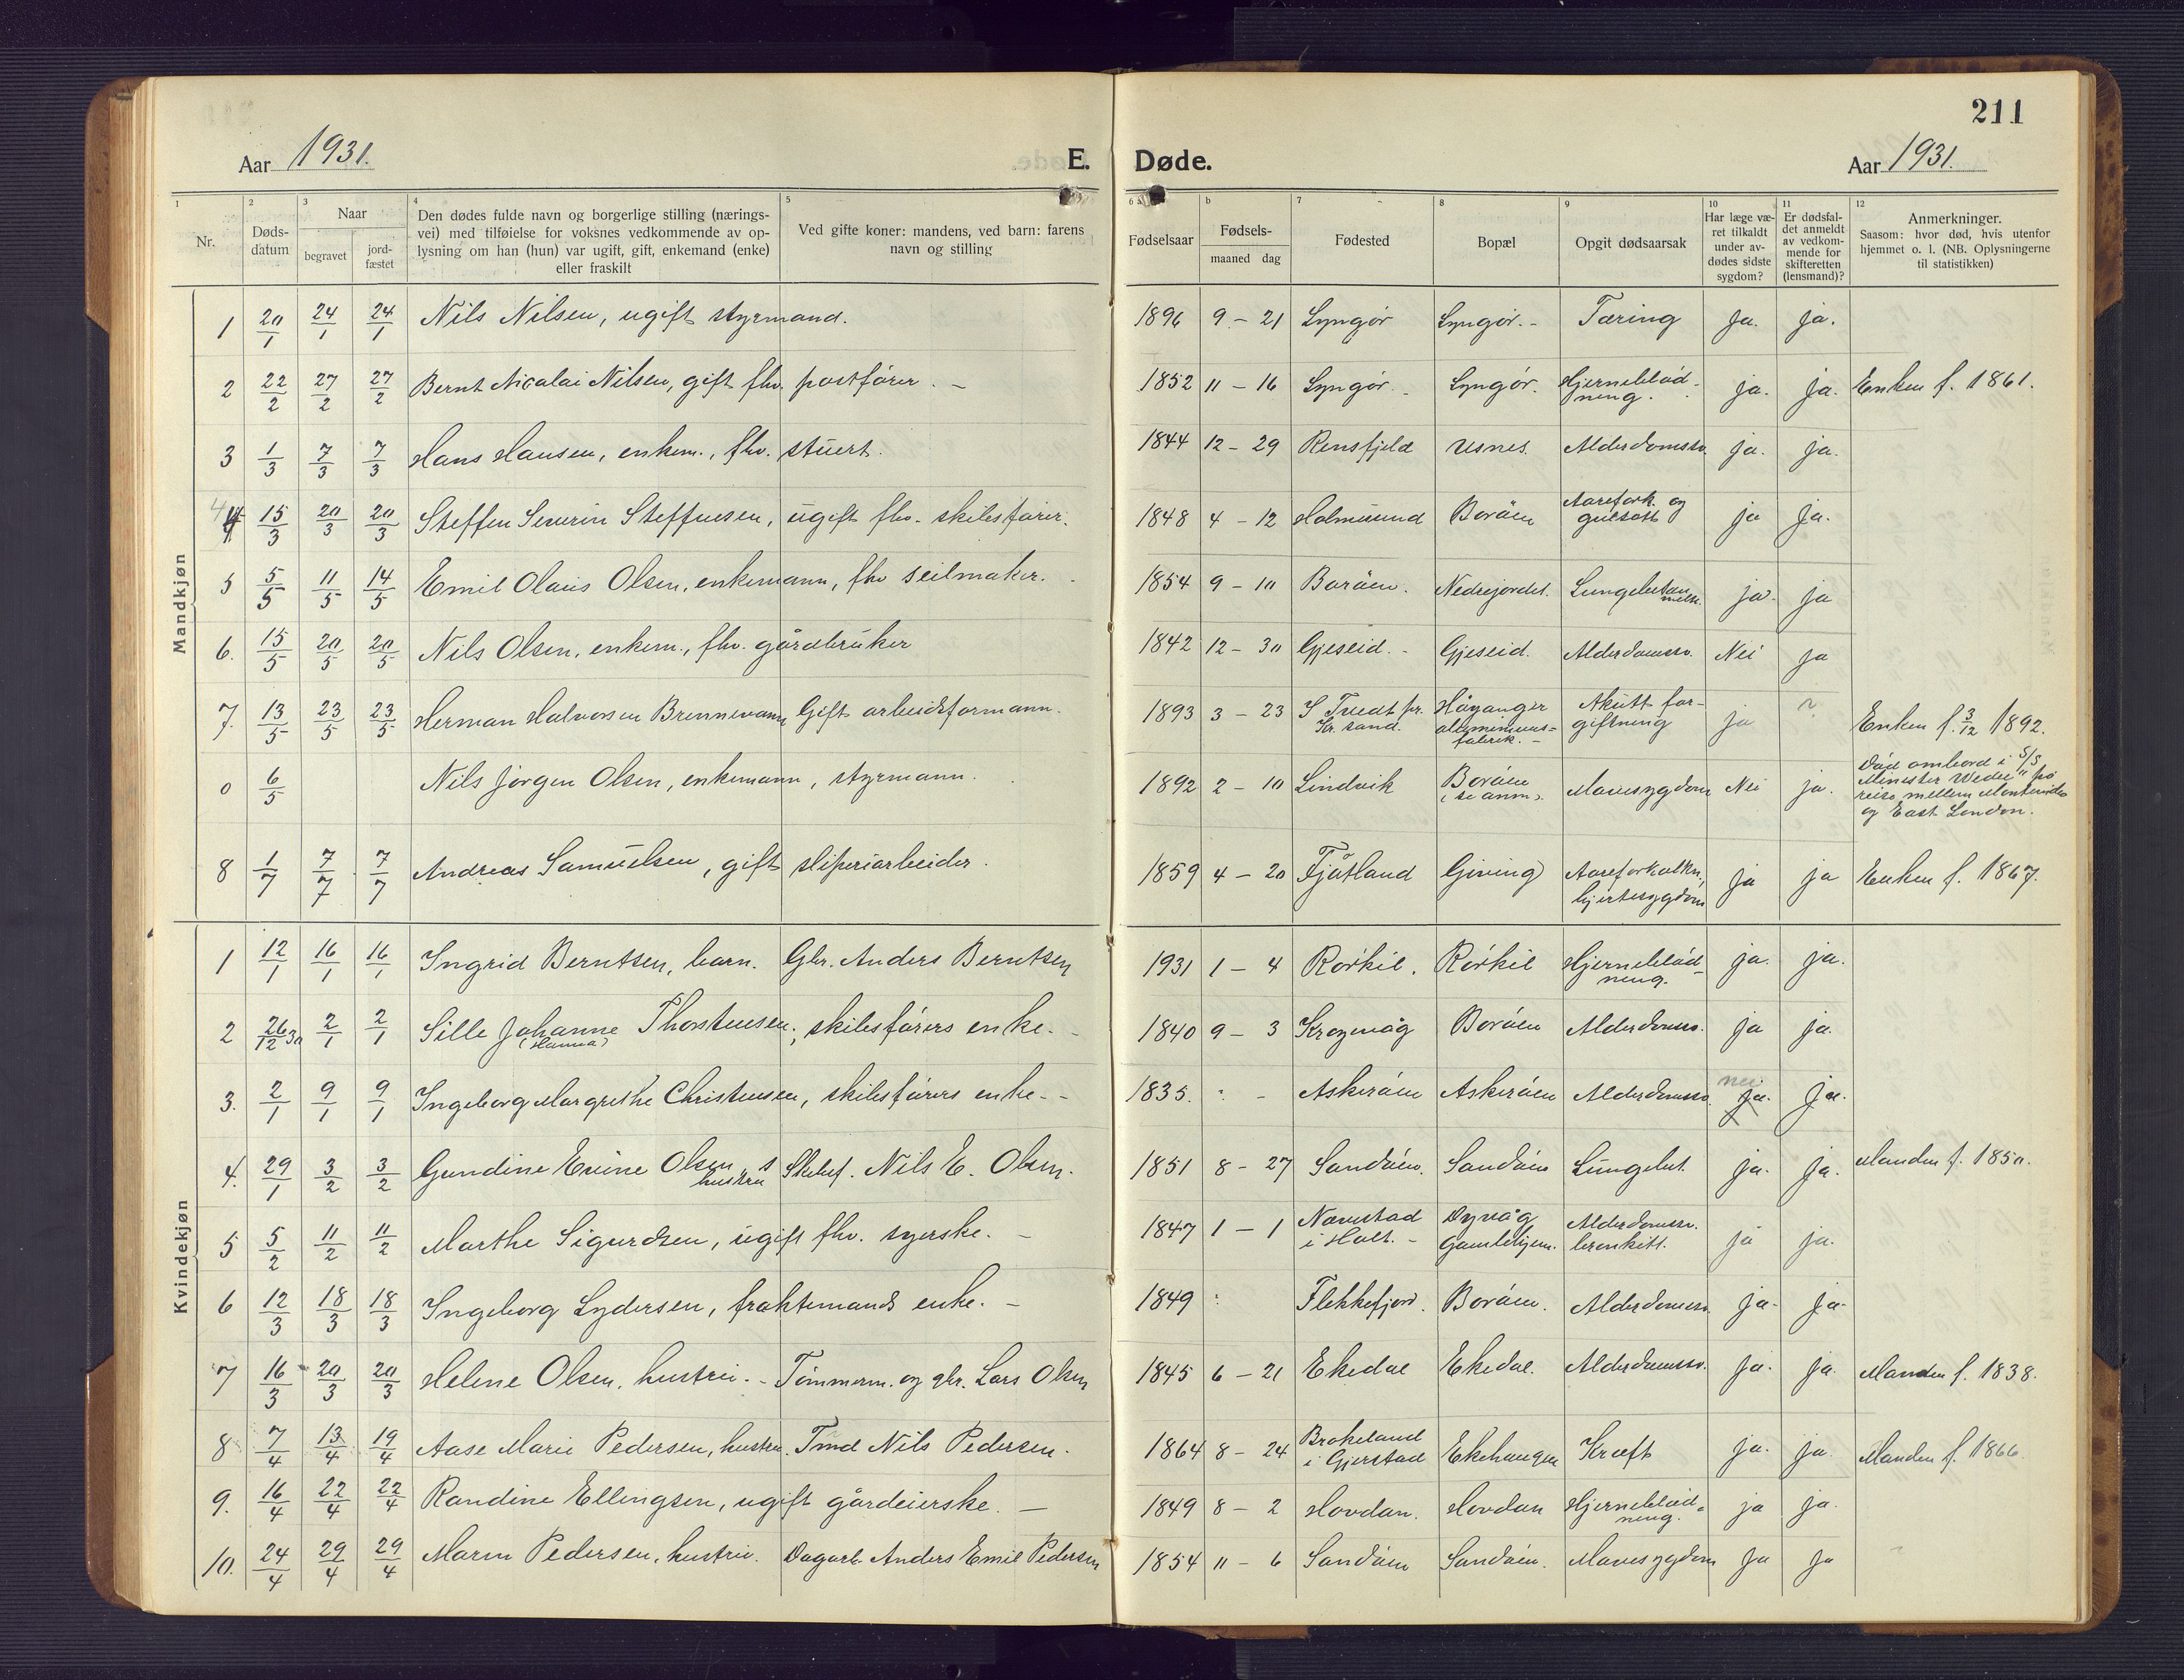 211
Aar 1931. E. Døde. Aar 1931.
1 Nr.
2 Døds-datum
3 Naar begravet jord-fæstet
4 Den dødes fulde navn og borgerlige stilling (nærings-
vei) med tilføielse for voksnes vedkommende av op-
lysning om han (hun) var ugift, gift, enkemand (enke)
eller fraskilt
5 Ved gifte koner: mandens, ved barn: farens
navn og stilling
6 a Fødselsaar
b Fødsels-
maaned dag
7 Fødested
8 Bopæl
9 Opgit dødsaarsak
10 Har læge væ-
ret tilkaldt
under av-
dødes sidste
sygdom?
11 Er dødsfal-
det anmeldt
av vedkom-
mende for
skifteretten
(lensmand)?
12 Anmerkninger.
Saasom: hvor død, hvis utenfor
hjemmet o. l. (NB. Oplysningerne
til statistikken)
Mandkjøn
1 20/1 24/1 24/1 Nils Nilsen, ugift styrmand. 1896 9 - 21 Lyngør Lyngør. - Tæring Ja. ja.
2 22/2 27/2 27/2 Bernt Nicolai Nilsen, gift fhv. postfører. - 1852 11 - 16 Lyngør. Lyngør. Hjerneblød-
ning. ja. ja. Enken f. 1861.
3 1/3 7/3 7/3 Hans Hansen, enkem., fhv. stuert. 1844 12 - 29 Rensfjeld Usnes. Alderdomssv. ja. ja.
4 15/3 20/3 20/3 Steffen Severin Steffensen, ugift fhv. skibsfører. 1848 4 - 12 Holmsund Borøen Aarefork. og
gulsott ja ja.
5 5/5 11/5 14/5 Emil Olaus Olsen, enkemann, fhv seilmaker. 1854 9 - 10 Borøen. Nedrejordet. ja. ja
6. 15/5 20/5 20/5 Nils Olsen, enkem., fhv. gårdbruker 1842 12 - 30 Gjeseid. - Gjeseid. Alderdomssv. Nei ja
7. 13/5 23/5 23/5 Herman Halvorsen Brennemann Gift arbeidsformann. 1893 3 - 23 S Tvedt pr.
Kr. sand. Høyanger
aluminiums=
fabrik. - Akutt for-
giftning ja ? Enken f. 3/12 1892.
0 6/5 Nils Jørgen Olsen, enkemann, styrmann. 1892 2 - 10 Lindvik Borøen
(se anm). Mavesygdom Nei ja. Død ombord i S/S
Minister Wedel" på
reise mellem Montevideo
og East London.
8 1/7 7/7 7/7 Andreas Samuelsen, gift sliperiarbeider. 1859 4 - 20 Fjåtland Giving Aareforkalkn.,
hjertesygdom ja ja Enken f. 1867.
Kvindekjøn
1 12/1 16/1 16/1 Ingrid Berntsen, barn. Gbr. Anders Berntsen 1931 1 - 4 Rørkil. Rørkil Hjerneblød-
ning. ja. ja.
2 26/12 30 2/1 2/1 Sille Johanne Thorstensen, skibsførers enke. -
(Hanna) 1840 9 - 3 Krogevåg Borøen Alderdomssv. ja ja.
3. 2/1 9/1 9/1 Ingeborg Margrethe Christensen, skibsførers enke. - 1835. Askerøen Askerøen Alderdomssv. nei ja. ja.
4. 29/1 3/2 3/2 Gundine Evine Olsen, hustru Skibsf. Nils E. Olsen. 1851 8 - 27 Sandøen. Sandøen Lungebet. ja. ja. Manden f. 1850.
5 5/2 11/2 11/2 Marthe Sigurdsen, ugift fhv. syerske. - 1847 1 - 1 Nævestad
i Holt. - Dypvåg
Gamlehjem. Alderdomssv.
bronkitt. ja ja.
6 12/3 18/3 18/3 Ingeborg Lydersen, fraktemands enke. - 1849 Flekkefjord. Borøen. Alderdomssv. ja. ja.
7 16/3 20/3 20/3 Helene Olsen, hustru. - Tømmerm. og gbr. Lars Olsen 1845 6 - 21 Ekedal Ekedal. Alderdomssv. ja. ja. Manden f. 1838.
8 7/4 13/4 19/4 Aase Marie Pedersen, hustru. Tmd Nils Pedersen. 1864 8 - 24 Brokeland
i Gjerstad Ekehaugen Kræft ja. ja. Manden f. 1866.
9. 16/4 22/4 22/4 Randine Ellingsen, ugift gårdeierske. - 1849 8 - 2 Hovdan. Hovdan Hjerneblød-
ning. ja ja.
10. 24/4 29/4 29/4 Maren Pedersen, hustru. Dagarb. Anders Emil Pedersen 1854 11 - 6 Sandøen Sandøen. Mavesygdom ja ja